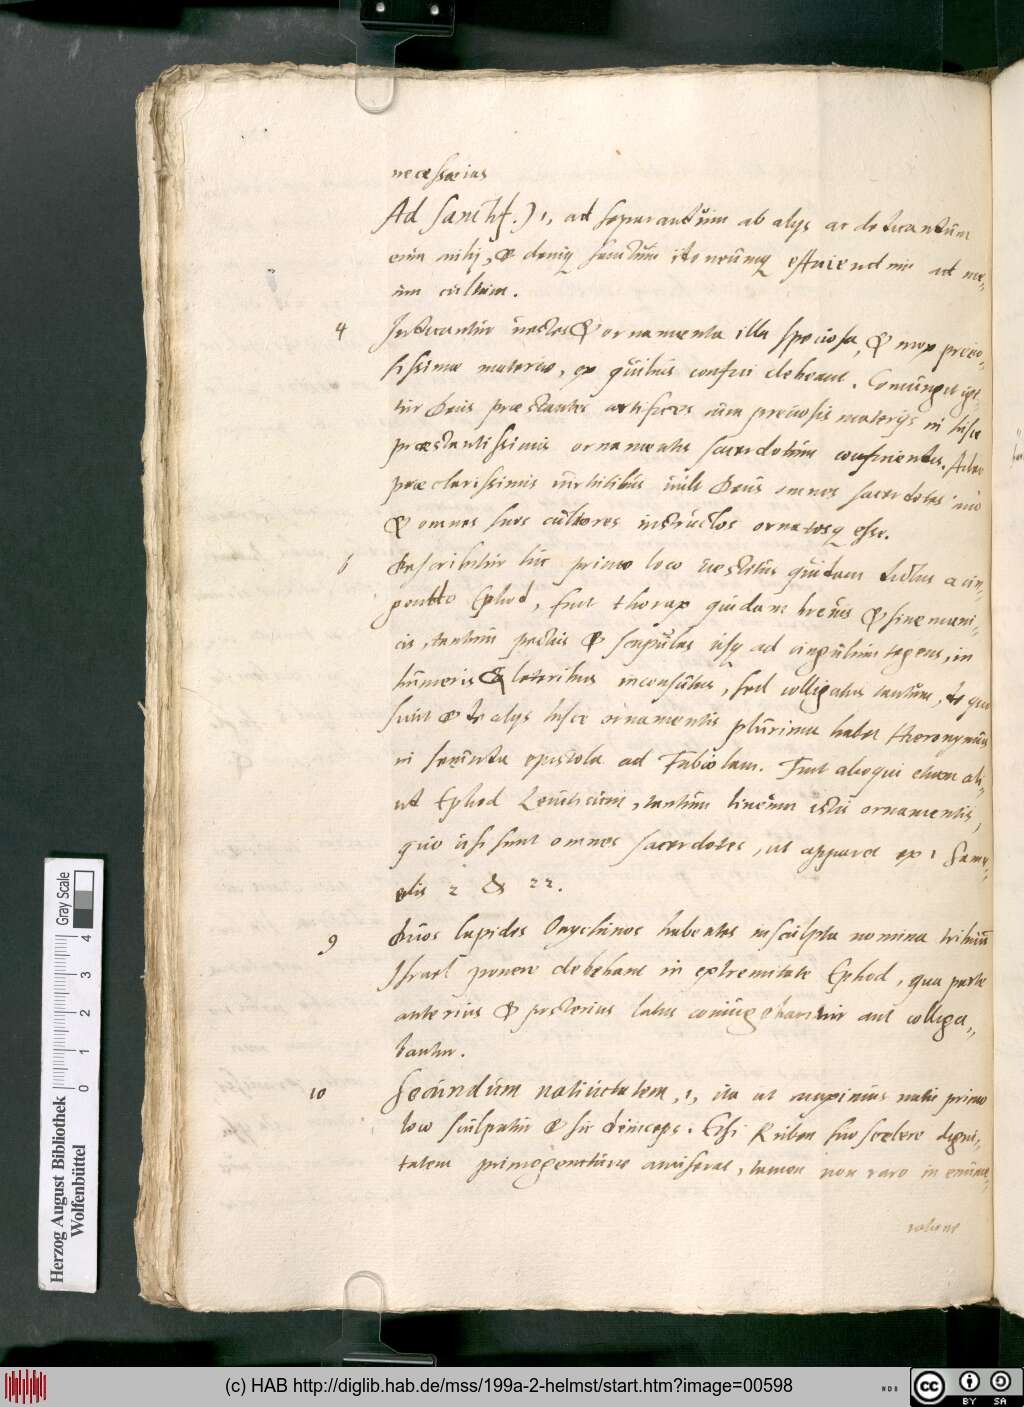 necessarias
Ad sanctif.) 1, ad separandum ab alijs ac dedicandum
eum mihi, & denique sanctum idoneumque efficiendum ad me-
um cultum.
4 Indicantur vestes & ornamenta illa speciosa, & mox precio-
sissima materia, ex quibus confici debeant. Coniunget igi-
tur Deus præstantes artifices cum preciosis materijs in hisce
præstantissimis ornamentis sacerdotum conficiendis. Adeo
præclarissimis virtutibus vult Deus omnes sacerdotes suos
& omnes suos cultores instructos ornatosque esse.
6 Describitur hic primo loco vestitus quidam dictus a cin-
gendo Ephod, fuit thorax quidam brevis & sine mani-
cis, tantum pectus & scapulas usque ad cingulum tegens, in
humeris & lateribus inconsutus, sed colligatus tantum, de quo
sicut & de alijs hisce ornamentis plurima habet Hieronymus
in epistola ad Fabiolam. Fuit alioqui etiam ali-
ud Ephod Leuiticum, tantum lineum istis ornamentis,
quo usi sunt omnes sacerdotes, ut apparet ex 1 Samu-
elis 2 & 22.
9 Duos lapides Onychinos habentes insculpta nomina tribuum
Israel ponere debebant in extremitate Ephod, qua parte
anterius & posterius latus coniungebantur aut colliga-
bantur.
10 Secundum natiuitatem, 1, ita ut maximus natu primo
loco sculpatur & sic deinceps. Etsi Ruben suo scelere digni-
tatem primogeniturae amiserat, tamen non raro in enume-
ratione
Herzog August Bibliothek
Wolfenbüttel
Gray Scale
0 1 2 3 4
(c) HAB http://diglib.hab.de/mss/199a-2-helmst/start.htm?image=00598
cc BY SA